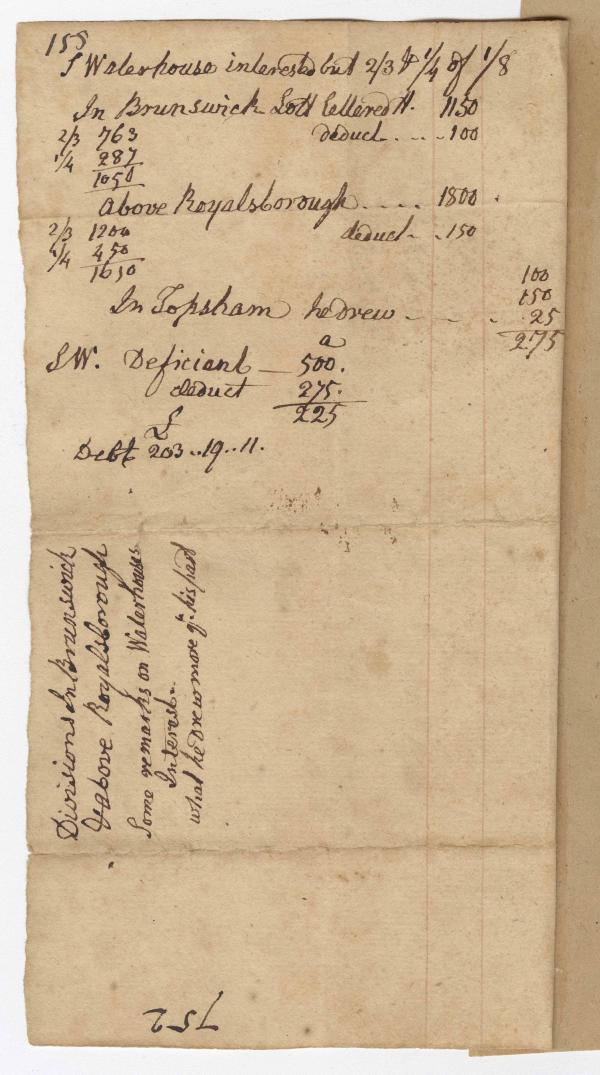 158
S Waterhouse interested but 2/3 & 1/4 of 1/8
In Brunswick Lott Lettered H. 1150
2/3 763 deduct .... 100
1/4 287
1050
above Royalsborough .... 1800.
2/3 1200 deduct .. 150
1/4 450
1650
100
150
In Topsham he drew - - - 25
275
a
SW. Deficiant — 500.
deduct 275.
225
£
Debt 203..19..11.
Divisions In Brunswick
& above Royalsborough
Some remarks on Waterhouses
Interest.
what he drew more yn. his part
752